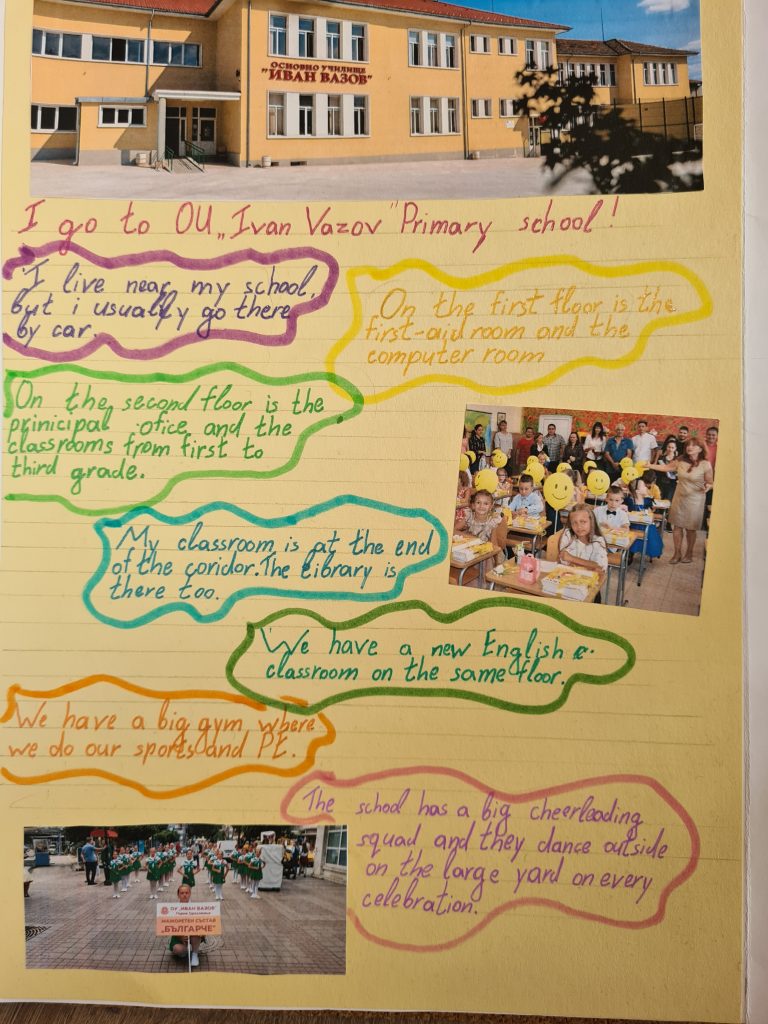 ОСНОВНО УЧИЛИЩЕ
"ИВАН ВАЗОВ"
I go to OU „Ivan Vazov" Primary school!
I live near my school,
but i usually go there
by car.
On the first floor is the
first-aid room and the
computer room
On the second floor is the
prinicipal ofice and the
classrooms from first to
third grade.
My classroom is at the end
of the coridor. The library is
there too.
We have a new English
classroom on the same floor.
We have a big gym where
we do our sports and PE.
The school has a big cheerleading
squad and they dance outside
on the large yard on every
celebration.
ОУ „ИВАН ВАЗОВ"
МАЖОРЕТЕН СЪСТАВ
„БЪЛГАРЧЕ"